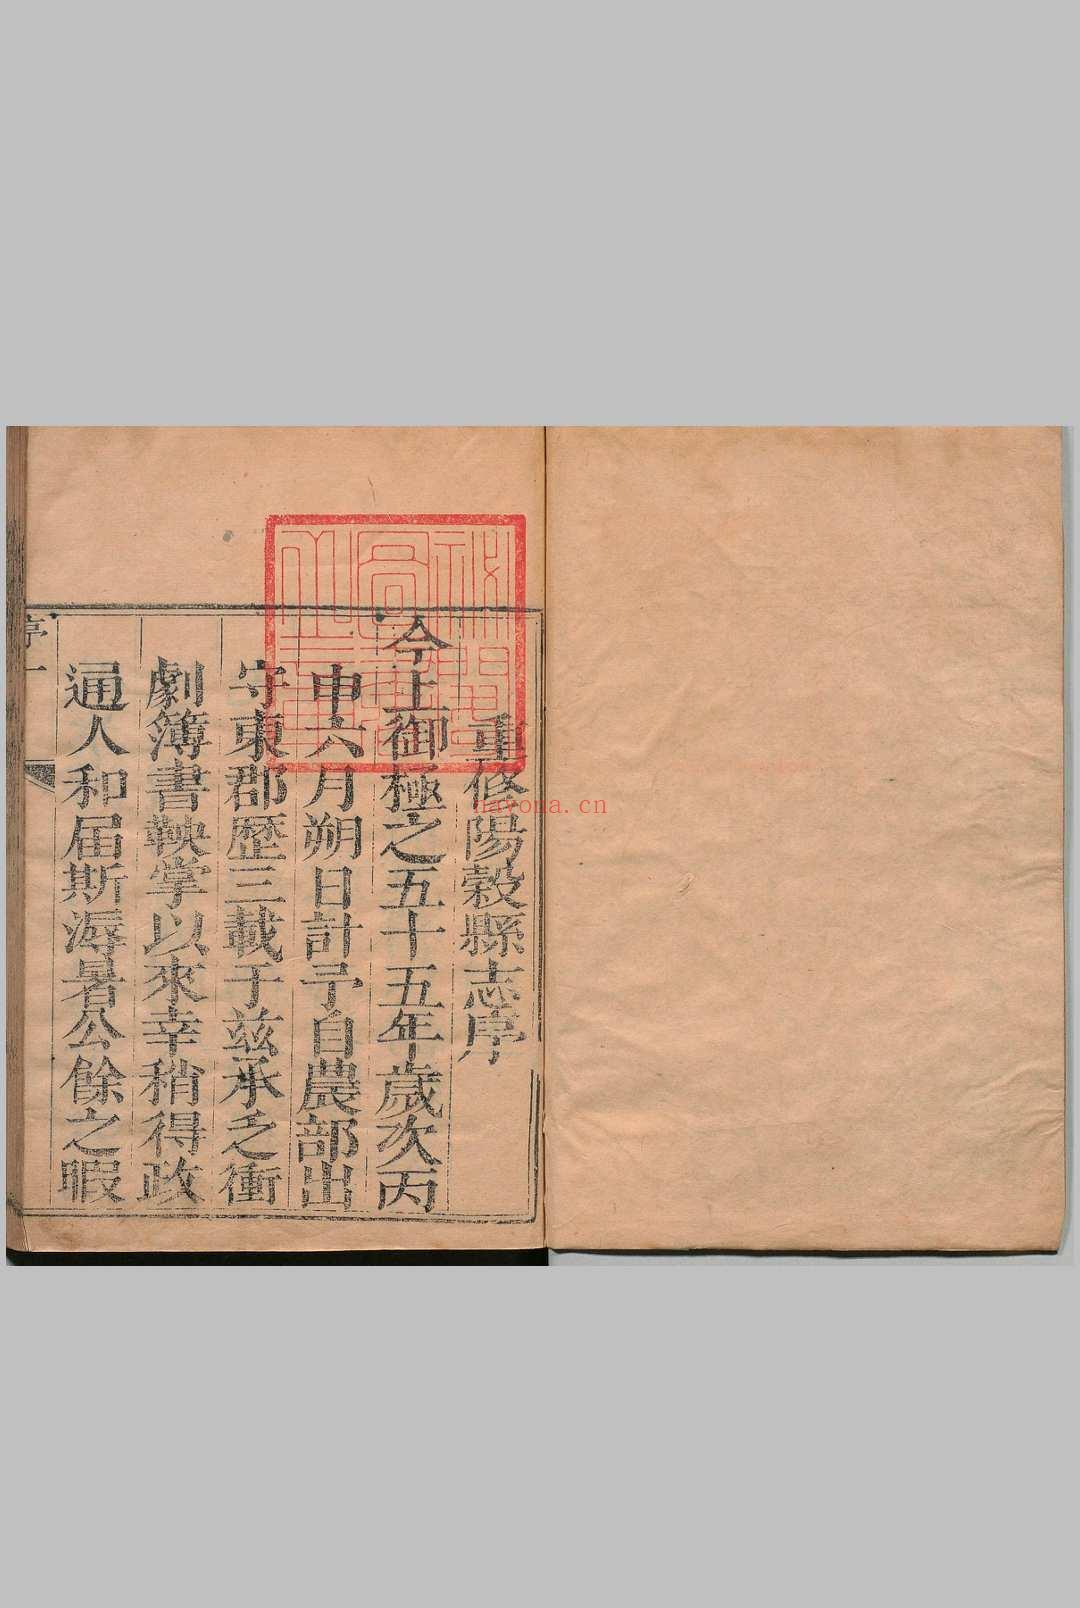 重修陽穀縣志序
今上御極之五十五年歲次丙
申六月朔日計予自農部出
守東郡歷三載于茲承乏衝
劇簿書鞅掌以來幸稍得政
通人和届斯溽暑公餘之暇
序一
nayona.cn